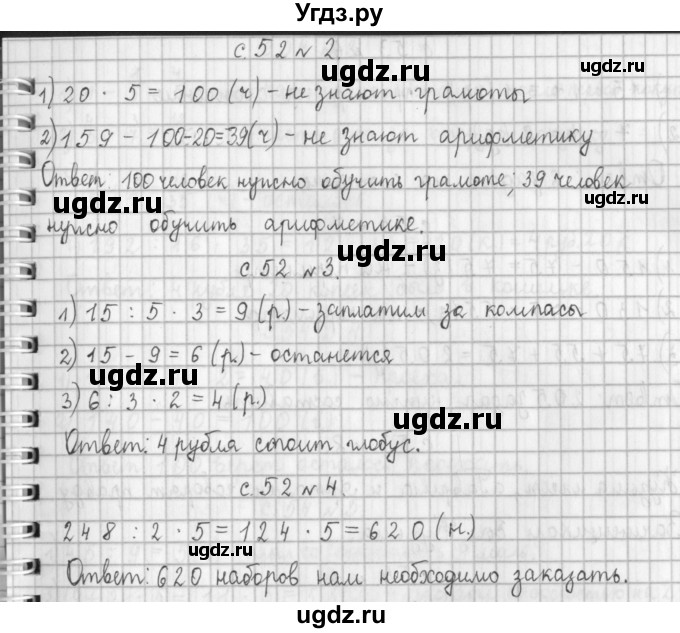 Угдз.ру
с. 52 № 2.
ugdz.ru
1) 20 · 5 = 100 (ч) - не знают грамоты
ugdz.ru
2) 159 - 100 - 20 = 39 (ч) - не знают арифметику
Ответ: 100 человек нужно обучить грамоте; 39 человек
ugdz.ru ugdz.ru
нужно обучить арифметике.
ugdz.ru
с. 52 № 3.
1) 15 : 5 · 3 = 9 (р.) - заплатим за компасы
ugdz.ru
2) 15 - 9 = 6 (р.) - останется
ugdz.ru
3) 6 : 3 · 2 = 4 (р.)
ugdz.ru
Ответ: 4 рубля стоит глобус.
с. 52 № 4.
ugdz.ru
248 : 2 · 5 = 124 · 5 = 620 (н.)
ugdz.ru
Ответ: 620 наборов нам необходимо заказать.
ugdz.ru